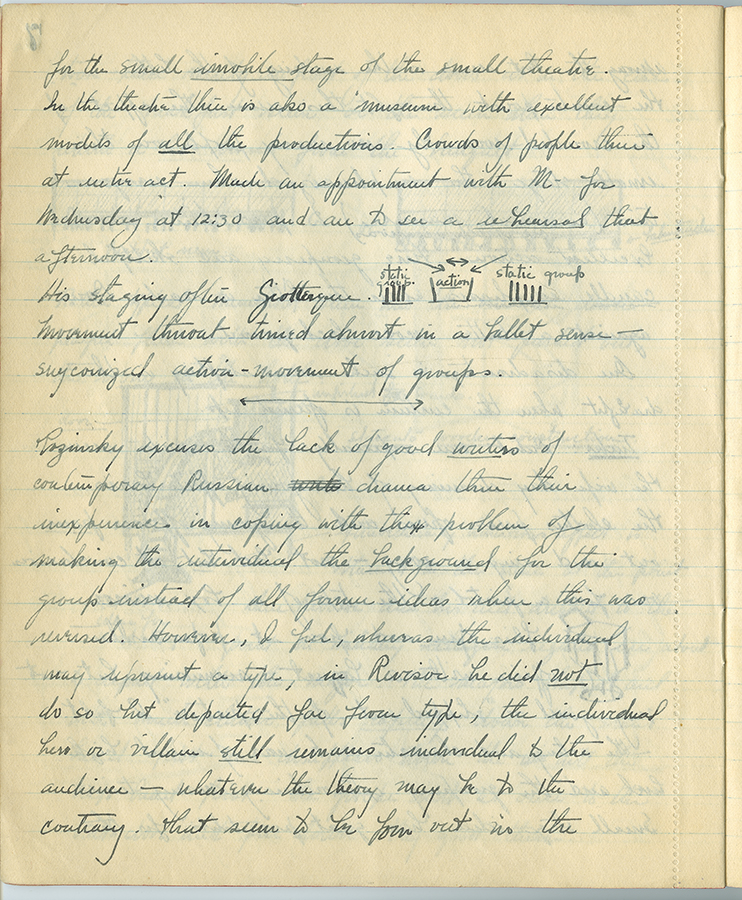 for the small imobile stage of the small theatre.
In the theatre there is also a "museum with excellent
models of all the productions. Crowds of people there
at entre act. Made an appointment with M- for
Wednesday at 12:30 and am to see a rehearsal that
afternoon.
static group. action static group
His staging often Giottesque.
Movement thruout timed almost in a ballet sense —
snyconized action - movement of groups.
Rozinsky excuses the lack of good writers of
contemporary Russian drama thru their
inexperience in coping with the problem of
making the interividual the background for the
group instead of all former ideas when this was
reversed. However, I feel, whereas the individual
may represent a type, in Revisor he did not
do so but departed far from type, the individual
hero or villain still remains individual to the
audience — whatever the theory may be to the
contrary. That seem to be born out in the